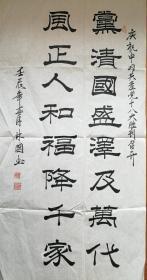 庆祝中国共产党十八大胜利召开
黨清國盛澤及萬代
風正人和福降千家
壬辰年